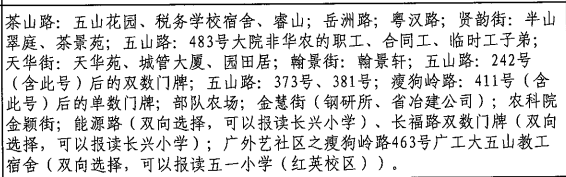 茶山路：五山花园、税务学校宿舍、睿山；岳洲路；粤汉路；贤韵街：半山
翠庭、茶景苑；五山路：483号大院非华农的职工、合同工、临时工子弟；
天华街：天华苑、城管大厦、园田居；翰景街：翰景轩；五山路：242号
（含此号）后的双数门牌；五山路：373号、381号；瘦狗岭路：411号（含
此号）后的单数门牌；部队农场；金慧街（钢研所、省冶建公司）；农科院
金颖街；能源路（双向选择，可以报读长兴小学）、长福路双数门牌（双向
选择，可以报读长兴小学）；广外艺社区之瘦狗岭路463号广工大五山教工
宿舍（双向选择，可以报读五一小学（红英校区））。